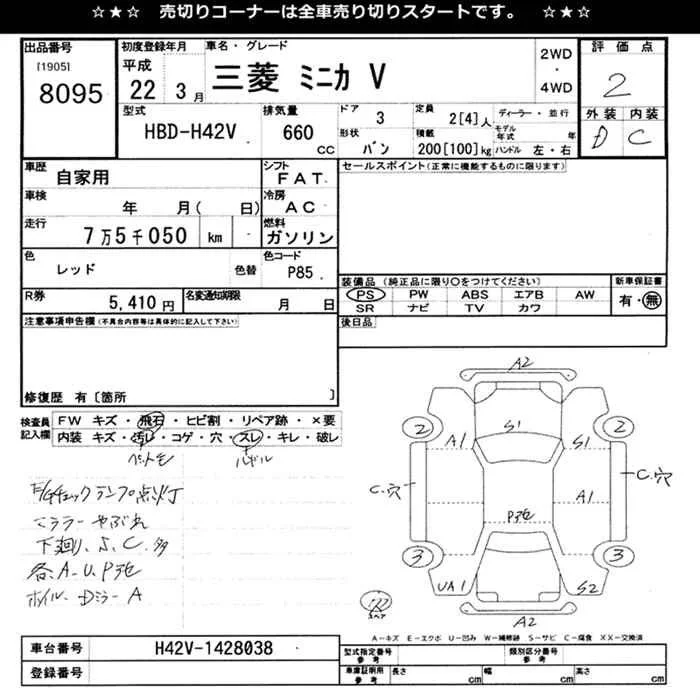 ☆★☆ 売切りコーナーは全車売り切りスタートです。 ☆★☆
出品番号 初度登録年月 車名・グレード 2WD・4WD 評価点
[1905] 8095 平成 22 3月 三菱 ミニカ V 2
外装 内装
D C
型式 排気量 ドア 定員 ディーラー・並行
HBD-H42V 660 CC 3 2[4]人 モデル年式 年
形状 積載 ハンドル 左・右
バン 200[100]kg
車歴 シフト セールスポイント(正常に機能するものに限ります)
自家用 FAT
車検 冷房
年 月( 日) AC
走行 燃料
7万5千050 km ガソリン
色 色コード
レッド 色替 P85
装備品 (純正品に限り〇をつけてください) 新車保証書
PS PW ABS エアB AW 有・無
SR ナビ TV カワ
R券 名変通知期限
5,410円 月 日
後日品
注意事項申告欄(不具合内容等は具体的に記入して下さい)
修復歴 有〔箇所 〕
検査員記入欄 FW キズ・飛石・ヒビ割・リペア跡・×要
内装 キズ・汚レ・コゲ・穴・スレ・キレ・破レ
ハンドル
E/Gチェックランプ点灯
マフラーやぶれ
下廻り、S、C、多
各、A-U、P多
ホイル、Dミラー A
A2
2 2
A1 S1 S1
C.穴 C.穴
A1
3 3
UA1 S2
A2
スペア
A-キズ E-エクボ U-凹み W-補修跡 S-サビ C-腐食 XX-交換済
車台番号 H42V-1428038
登録番号
型式指定番号 参考 類別区分番号 参考
車庫証明用 参考 長さ cm 幅 cm 高さ cm